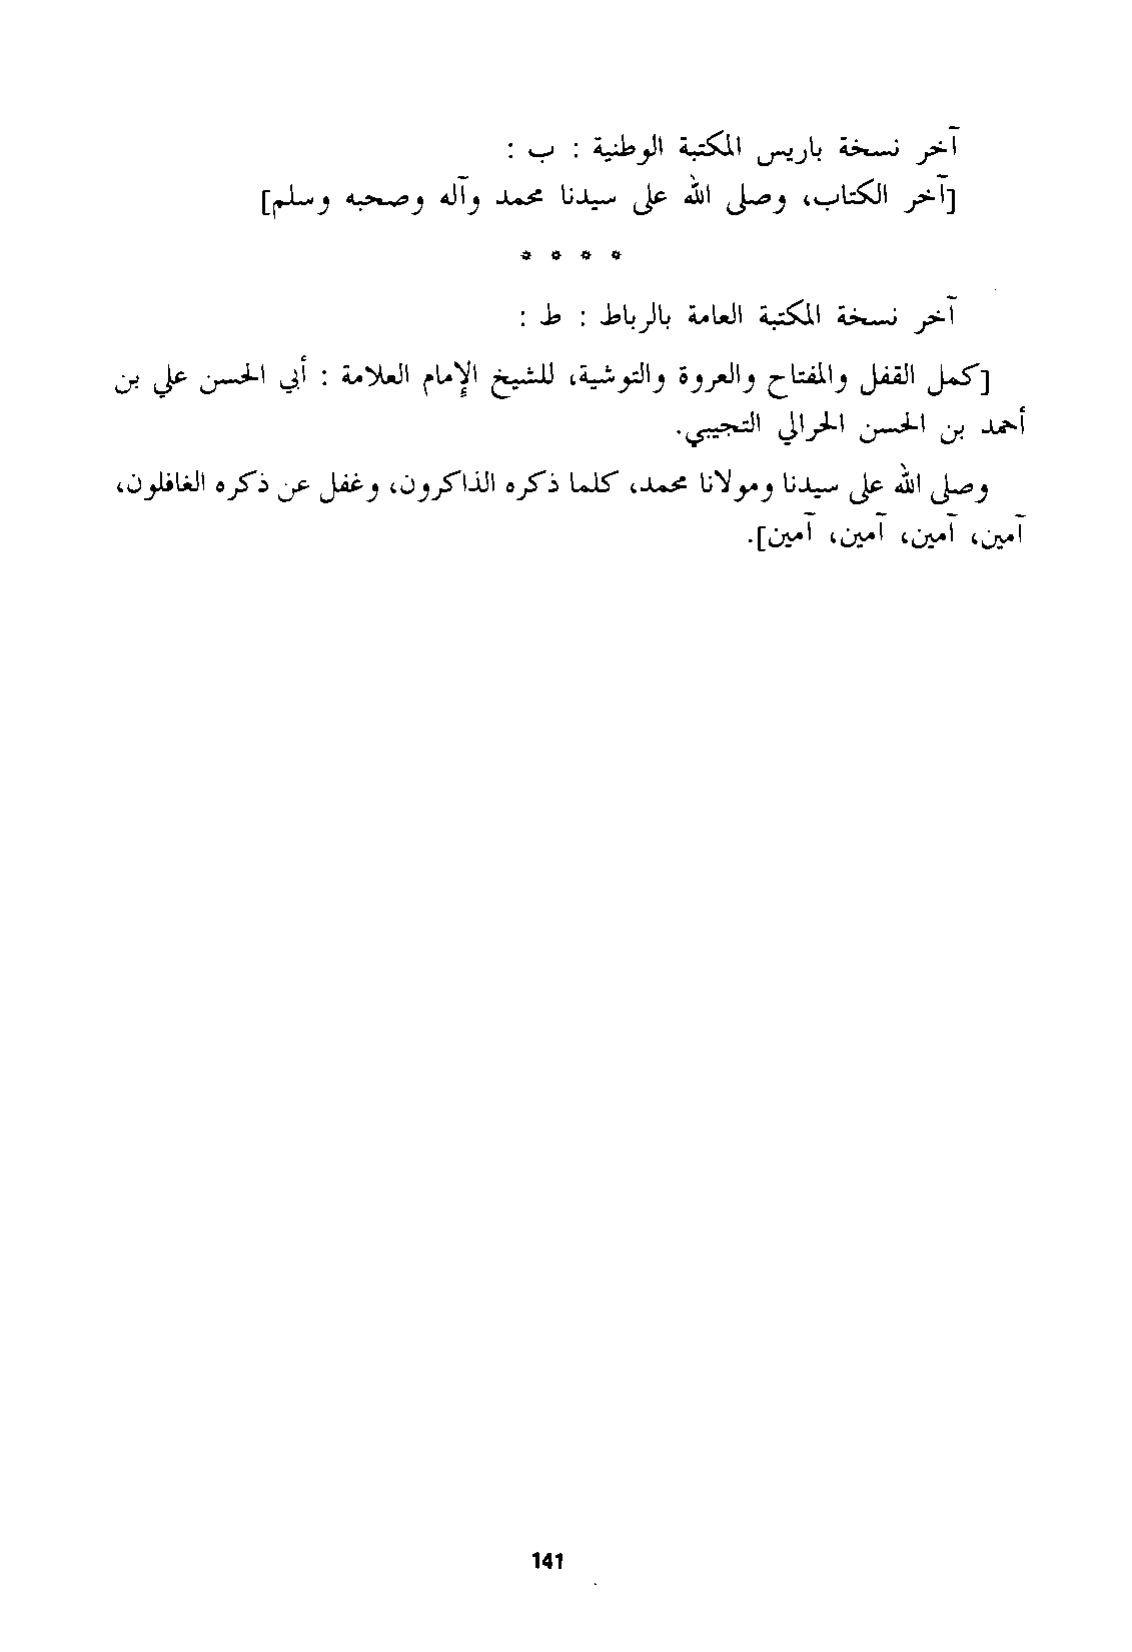 آخر نسخة باريس المكتبة الوطنية : ب :
[آخر الكتاب، وصلى الله على سيدنا محمد وآله وصحبه وسلم]
* * * *
آخر نسخة المكتبة العامة بالرباط : ط :
[كمل القفل والمفتاح والعروة والتوشية، للشيخ الإمام العلامة : أبي الحسن علي بن
أحمد بن الحسن الحرالي التجيبي.
وصلى الله على سيدنا ومولانا محمد، كلما ذكره الذاكرون، وغفل عن ذكره الغافلون،
آمين، آمين، آمين، آمين].
141